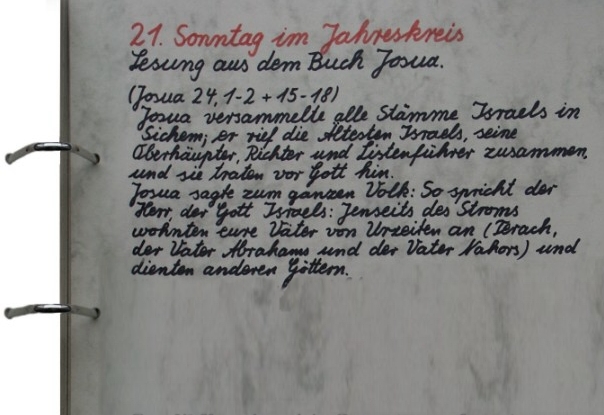 21. Sonntag im Jahreskreis
Lesung aus dem Buch Josua.
(Josua 24, 1-2 + 15-18)
Josua versammelte alle Stämme Israels in
Sichem; er rief die Ältesten Israels, seine
Oberhäupter, Richter und Listenführer zusammen,
und sie traten vor Gott hin.
Josua sagte zum ganzen Volk: So spricht der
Herr, der Gott Israels: Jenseits des Stroms
wohnten eure Väter von Urzeiten an (Terach,
der Vater Abrahams und der Vater Nahors) und
dienten anderen Göttern.